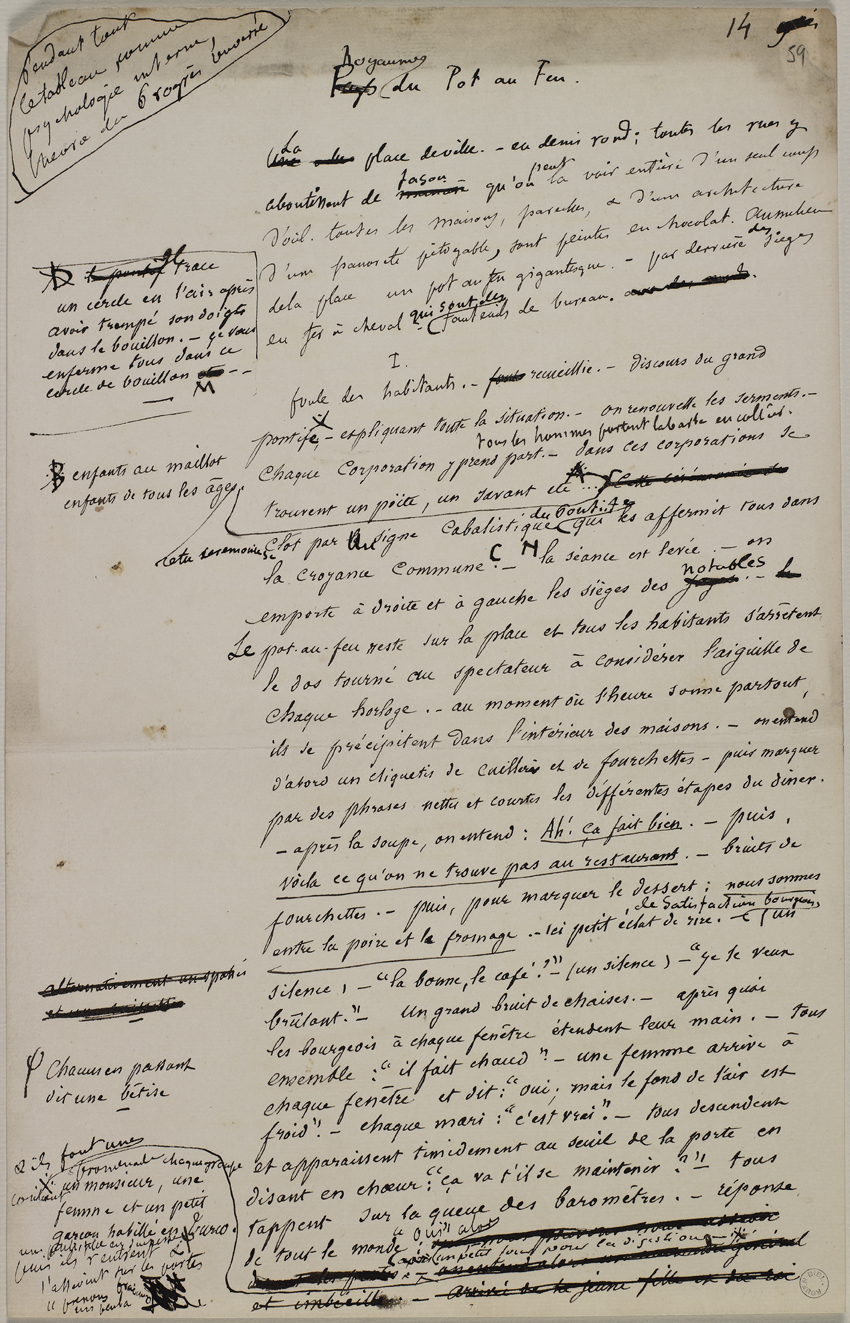 14
59
Pendant tout
le tableau comme
psychologie interne,
théorie du Progrès renversé
Royaumes
Pays du Pot au Feu.
La
Une place de ville. - en demi rond; toutes les rues y
aboutissent de façon qu'on peut la voir entière d'un seul coup
d'œil. toutes les maisons, pareilles, & d'une architecture
d'une pauvreté pitoyable, sont peintes en chocolat. Au milieu
de la place un pot au feu gigantesque. - par derrière des sièges
en fer à cheval qui sont des fauteuils de bureau.
I.
foule des habitants. - recueillie. - discours du grand
pontife, - expliquant toute la situation. - on renouvelle les serments. -
tous les hommes portent la barbe en collier.
Chaque Corporation y prend part. - dans ces corporations se
trouvent un poëte, un savant etc ... A Cette cérémonie
du Pontife
clot par Un signe cabalistique qui les affermit tous dans
la croyance commune. - C M la séance est levée. - on
emporte à droite et à gauche les sièges des notables. -
Le pot-au-feu reste sur la place et tous les habitants s'arrêtent
le dos tourné au spectateur à considérer l'aiguille de
chaque horloge. - au moment où l'heure sonne partout,
ils se précipitent dans l'intérieur des maisons. - on entend
d'abord un cliquetis de cuillers et de fourchettes - puis marquer
par des phrases nettes et courtes les différentes étapes du dîner.
- après la soupe, on entend : Ah! ça fait bien. - puis,
voilà ce qu'on ne trouve pas au restaurant. - bruits de
fourchettes. - puis, pour marquer le dessert : nous sommes
de satisfaction bourgeoise
entre la poire et le fromage. - ici petit éclat de rire. - (un
silence) - "la bonne, le café?" - (un silence) - "je le veux
brûlant." - Un grand bruit de chaises. - après quoi
les bourgeois à chaque fenêtre étendent leur main. - tous
ensemble : "il fait chaud" - une femme arrive à
chaque fenêtre et dit : "oui; mais le fond de l'air est
froid". - chaque mari : "c'est vrai". - tous descendent
et apparaissent timidement au seuil de la porte en
disant en chœur : "ça va t'il se maintenir?" - tous
tappent sur la queue des baromètres. - réponse
de tout le monde "oui" alors
un petit tour pour la digestion
et imbécille. - arrivée de la jeune fille et du roi
D Il trace
un cercle en l'air après
avoir trempé son doigt
dans le bouillon. - je vous
enferme tous dans ce
cercle de bouillon - -
M
B enfants au maillot
enfants de tous les âges
cette cérémonie se
alternativement un
φ Chacun en passant
dit une bêtise
& ils font une
promenade chaque groupe
consistant un monsieur, une
femme et un petit
garçon habillé en turco.
puis ils rentrent